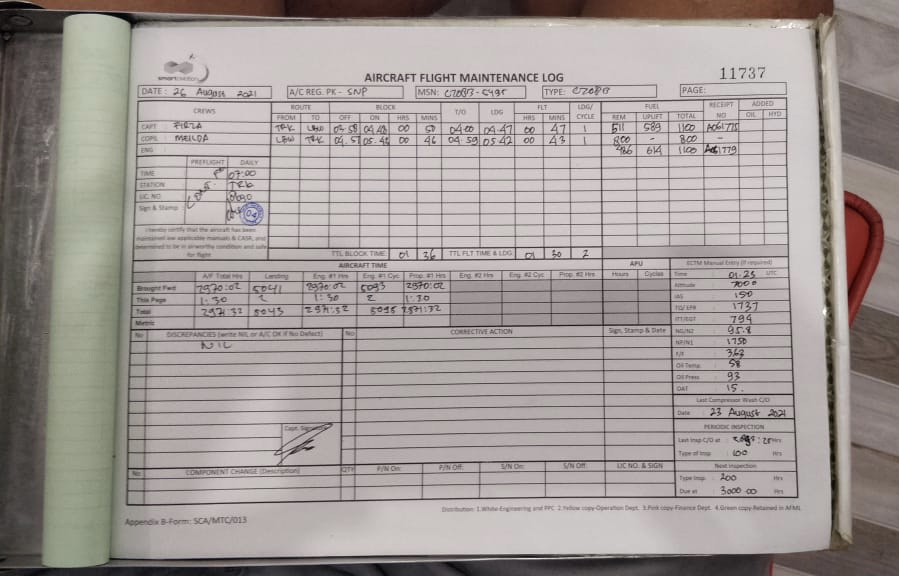 smartaviation
AIRCRAFT FLIGHT MAINTENANCE LOG
11737
DATE: 26 August 2021 A/C REG. PK - SNP MSN: C208B-5495 TYPE: C208B PAGE:
CREWS ROUTE BLOCK T/O LDG FLT LDG/CYCLE FUEL RECEIPT NO ADDED
FROM TO OFF ON HRS MINS HRS MINS REM UPLIFT TOTAL OIL HYD
CAPT FIRZA TRK LBW 03.58 04.48 00 50 04.00 04.47 00 47 1 511 589 1100
COP MEILDA LBW TRK 04.57 05.46 00 46 04.59 05.42 00 43 1 800 - 800 -
ENG 486 614 1100
PREFLIGHT DAILY
TIME 07:00
STATION TRK
LIC. NO
Sign & Stamp 04
I hereby certify that the aircraft has been
maintained iaw applicable manuals & CASR, and
determined to be in airworthy condition and safe
for flight
TTL BLOCK TIME: 01 36 TTL FLT TIME & LDG 01 30 2
AIRCRAFT TIME APU ECTM Manual Entry (If required)
A/F Total Hrs Landing Eng. #1 Hrs Eng. #1 Cyc Prop. #1 Hrs Eng. #2 Hrs Eng. #2 Cyc Prop. #2 Hrs Hours Cycles Time : 01.23 UTC
Brought Fwd 2970:02 5041 2970:02 5093 2970:02 Altitude : 7000
This Page 1:30 2 1:30 2 1:30 IAS : 150
Total 2971:32 5043 2971:32 5095 2971:32 TQ/EPR : 1737
Metric ITT/EGT : 794
No DISCREPANCIES (write NIL or A/C OK if No Defect) No CORRECTIVE ACTION Sign, Stamp & Date NG/N2 : 95.8
NIL NP/N1 : 1750
F/F : 363
Oil Temp : 58
Oil Press : 93
OAT : 15.
Last Compressor Wash C/O
Date : 23 August 2021
Capt. Signature
PERIODIC INSPECTION
Last Insp C/O at : Hrs
Type of Insp : 100 Hrs
No COMPONENT CHANGE (Description) QTY P/N On: P/N Off: S/N On: S/N Off: LIC NO. & SIGN Next Inspection
Type Insp. : 200 Hrs
Due at : 3000.00 Hrs
Distribution: 1.White-Engineering and PPC 2.Yellow copy-Operation Dept. 3.Pink copy-Finance Dept. 4.Green copy-Retained in AFML
Appendix B-Form: SCA/MTC/013